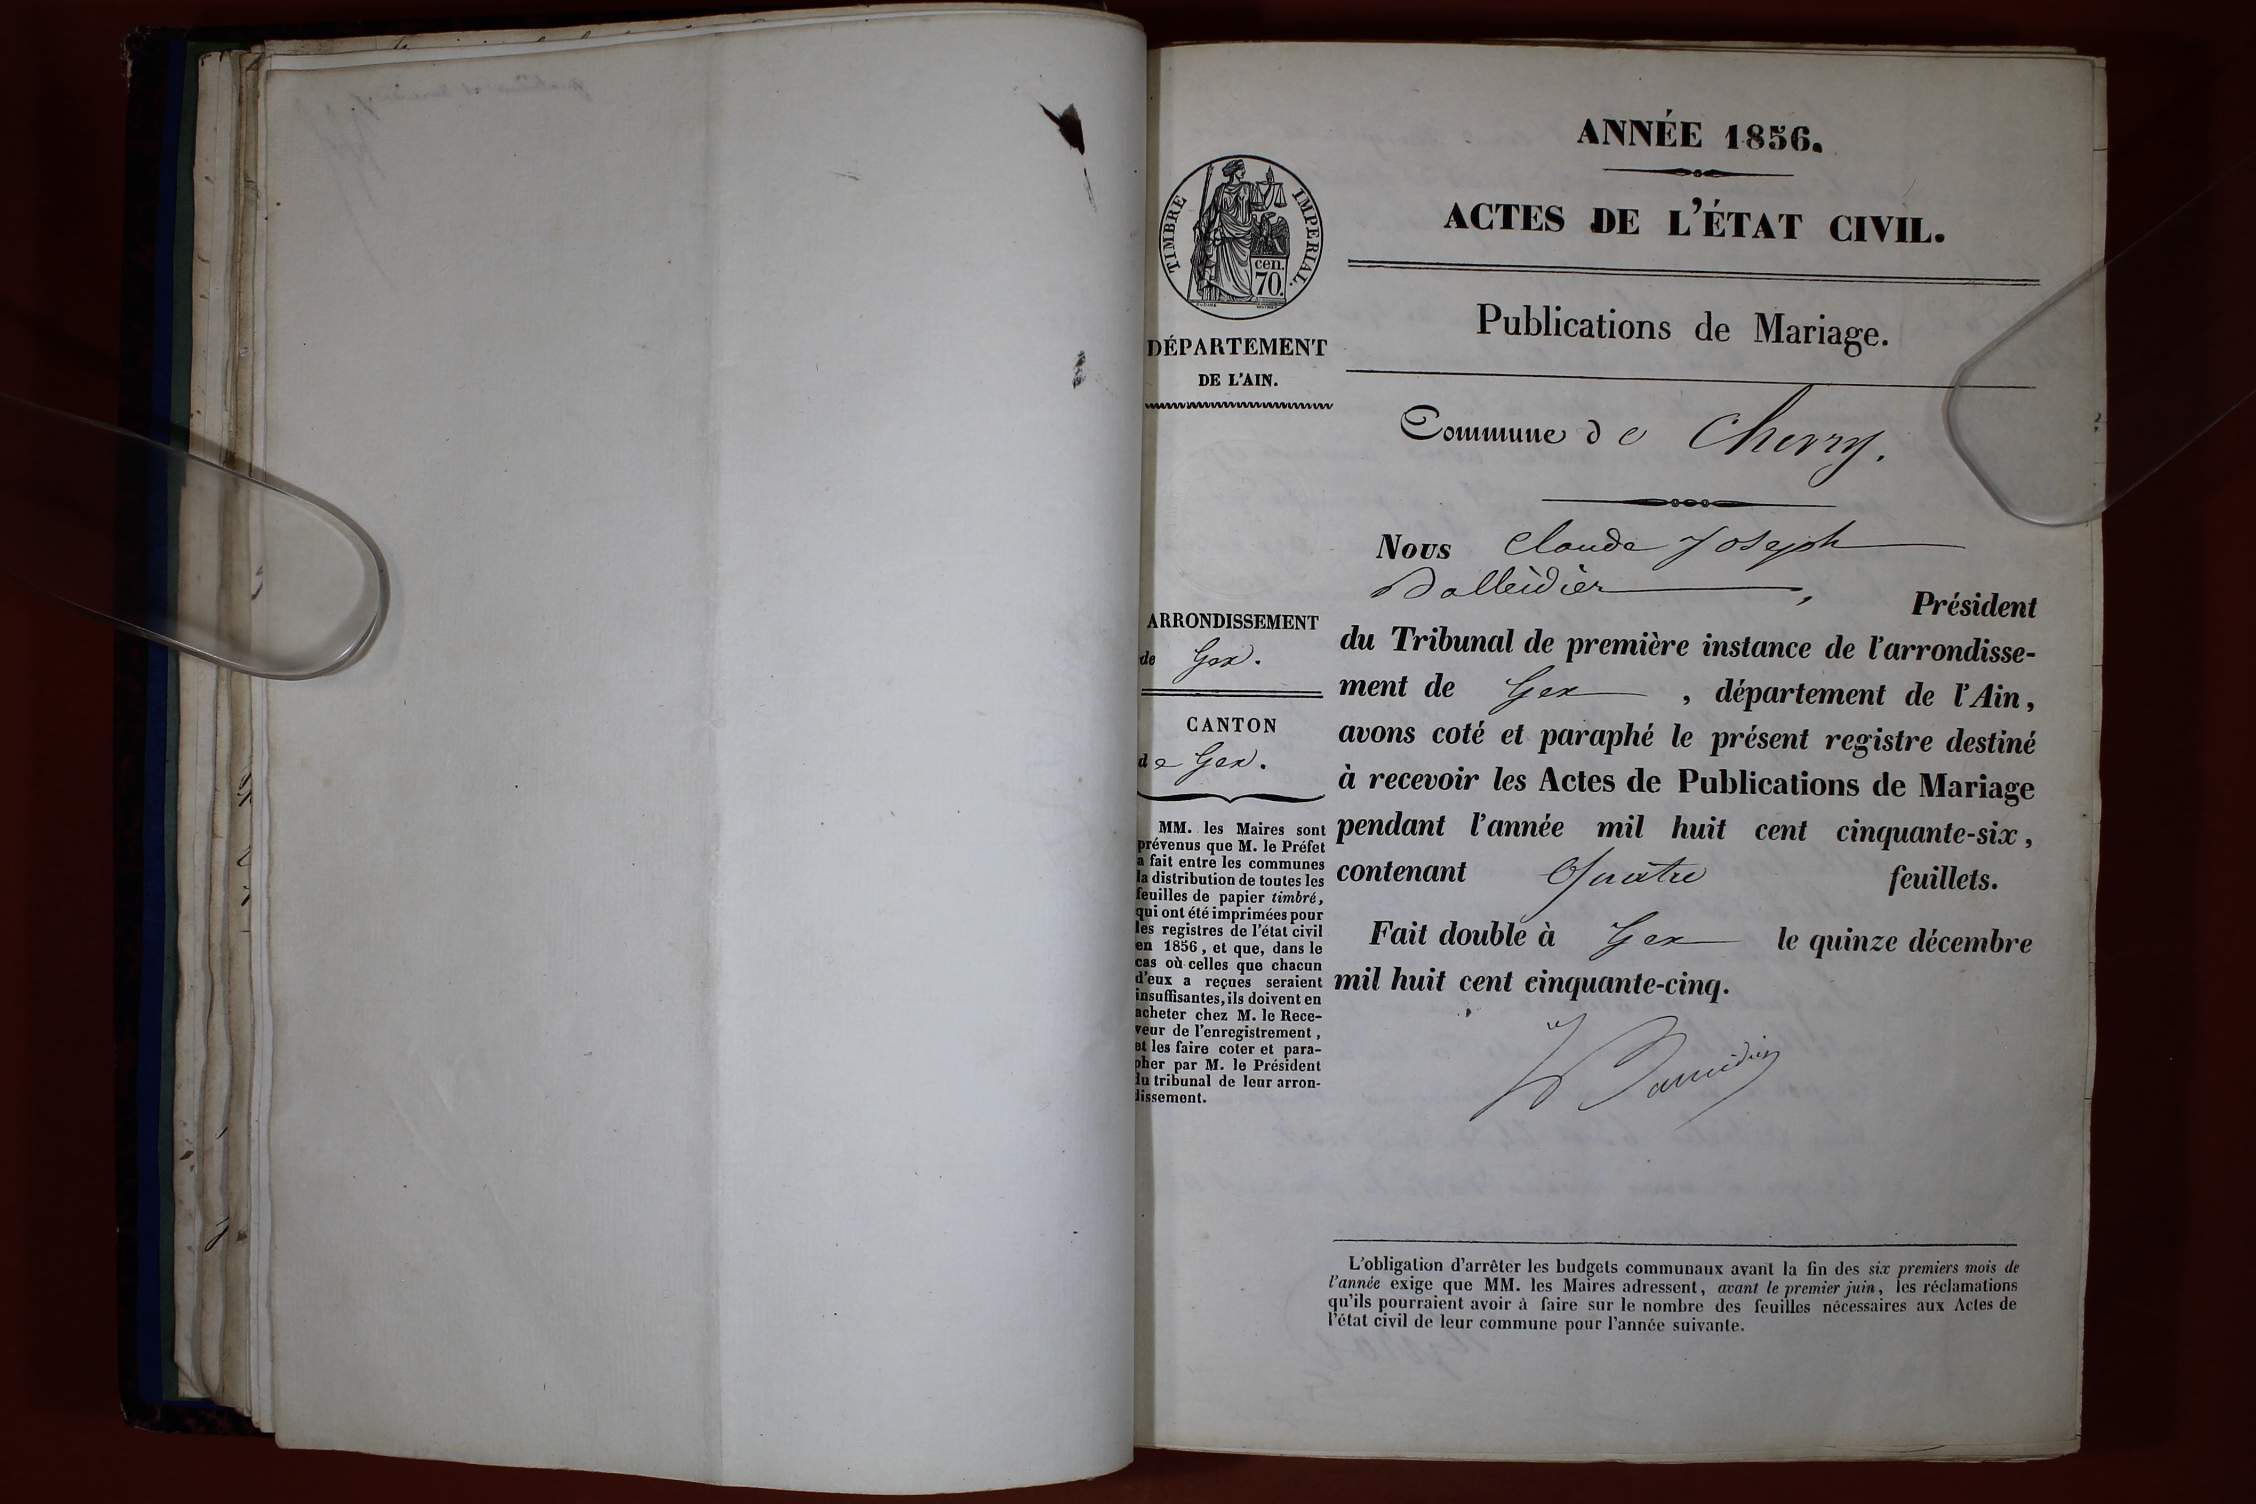 ANNÉE 1856.
ACTES DE L'ÉTAT CIVIL.
Publications de Mariage.
TIMBRE IMPERIAL.
cen.
70.
DÉPARTEMENT
DE L'AIN.
Commune de Chevry.
Nous Claude Joseph
Balleidier,
Président
du Tribunal de première instance de l'arrondisse-
ment de Gex, département de l'Ain,
avons coté et paraphé le présent registre destiné
à recevoir les Actes de Publications de Mariage
pendant l'année mil huit cent cinquante-six,
contenant Quatre feuillets.
Fait double à Gex le quinze décembre
mil huit cent cinquante-cinq.
ARRONDISSEMENT
de Gex.
CANTON
de Gex.
MM. les Maires sont
prévenus que M. le Préfet
a fait entre les communes
la distribution de toutes les
feuilles de papier timbré,
qui ont été imprimées pour
les registres de l'état civil
en 1856, et que, dans le
cas où celles que chacun
d'eux a reçues seraient
insuffisantes, ils doivent en
acheter chez M. le Rece-
veur de l'enregistrement,
et les faire coter et para-
pher par M. le Président
du tribunal de leur arron-
dissement.
L'obligation d'arrêter les budgets communaux avant la fin des six premiers mois de
l'année exige que MM. les Maires adressent, avant le premier juin, les réclamations
qu'ils pourraient avoir à faire sur le nombre des feuilles nécessaires aux Actes de
l'état civil de leur commune pour l'année suivante.